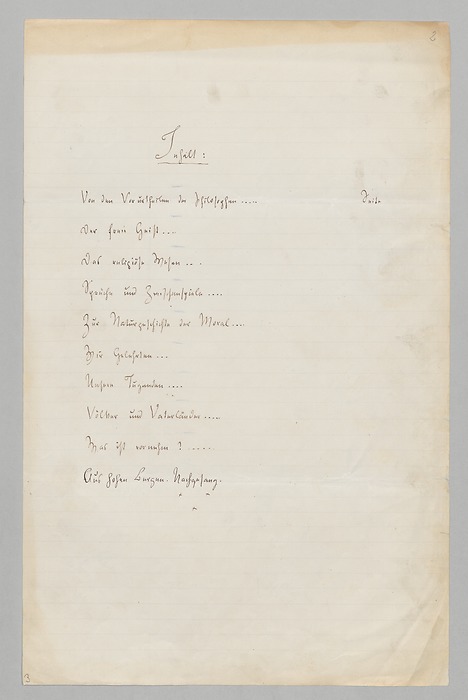 2
Inhalt:
Von den Vorurtheilen der Philosophen..... Seite
Der freie Geist....
Das religiöse Wesen....
Sprüche und Zwischenspiele....
Zur Naturgeschichte der Moral....
Wir Gelehrten...
Unsere Tugenden....
Völker und Vaterländer....
Was ist vornehm?.....
Aus hohen Bergen. Nachgesang.
3